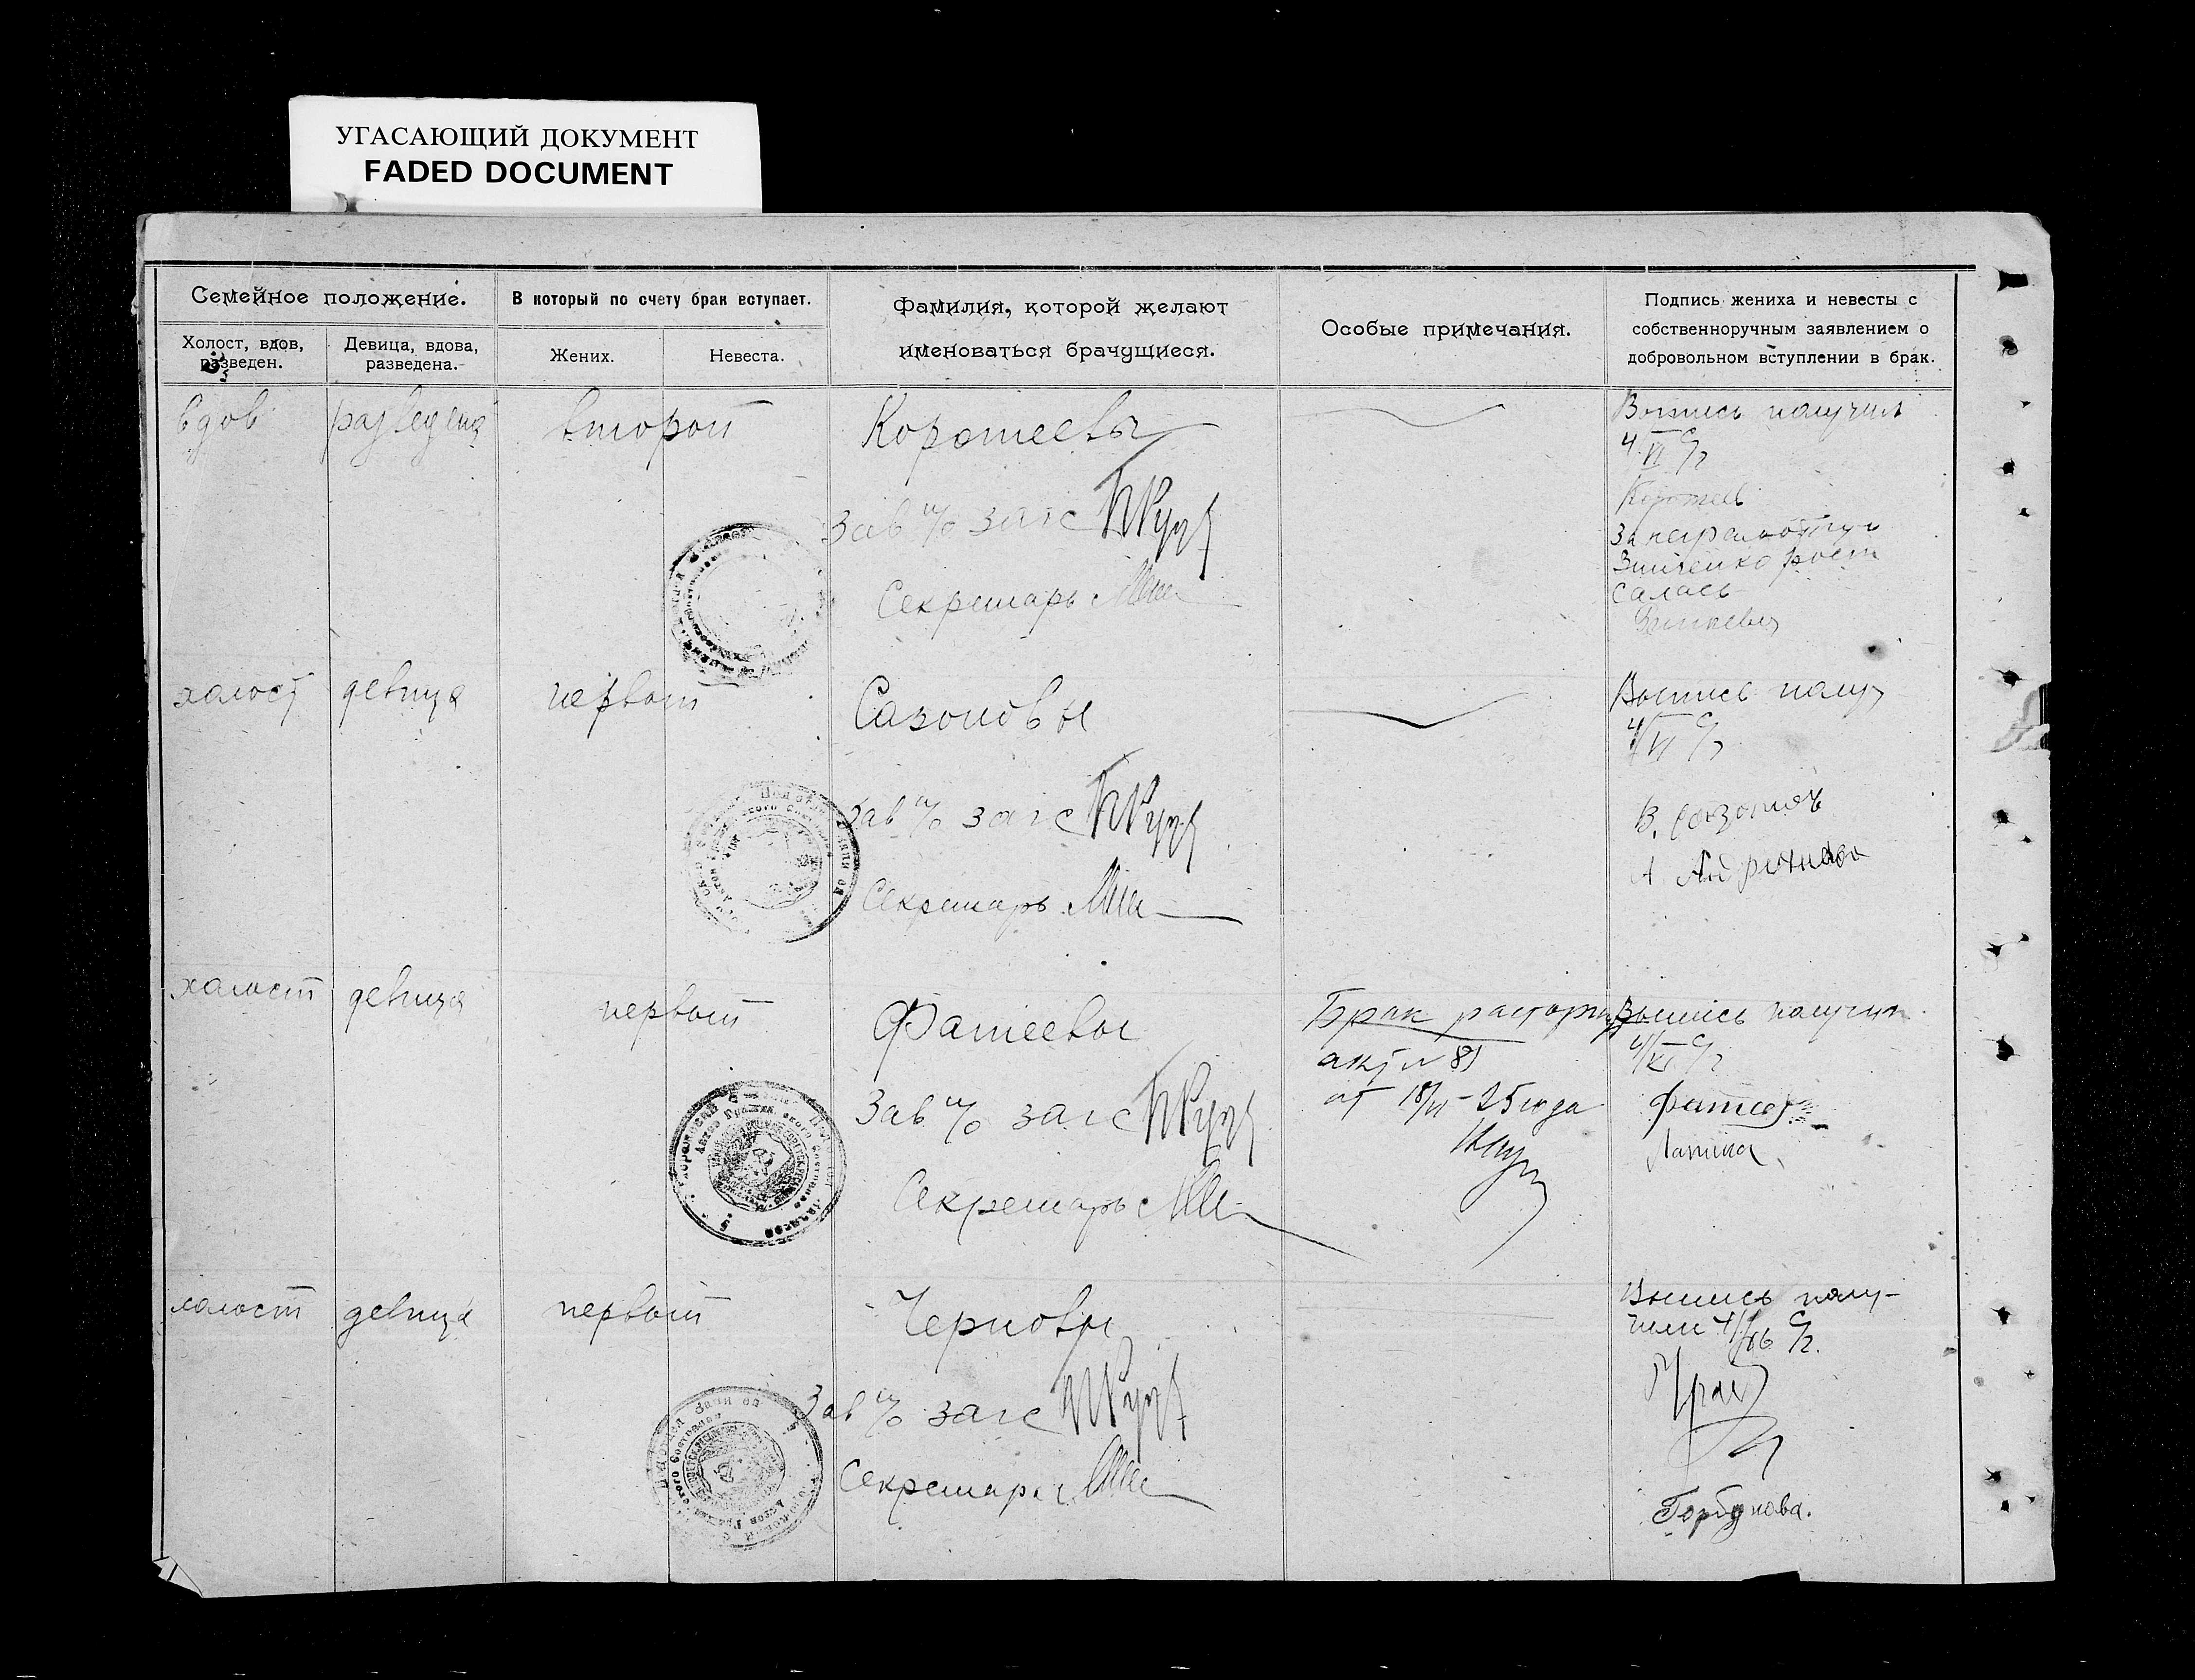 УГАСАЮЩИЙ ДОКУМЕНТ
FADED DOCUMENT
Семейное положение.
В который по счету брак вступает.
Фамилия, которой желают
именоваться брачущиеся.
Особые примечания.
Подпись жениха и невесты с
собственноручным заявлением о
добровольном вступлении в брак.
Холост, вдов,
разведен.
Девица, вдова,
разведена.
Жених.
Невеста.
вдов
разведена
второй
Коротеевы
Выпись получил
4/VI с/г
Зав п/о загс
Коротеев
За неграмотную
Зинченко роспи
салась
Секретарь
холост
девица
первый
Сазоновы
Выпись получ
4/VI с/г
Зав п/о загс
В. Сазонов
А
Секретарь
холост
девица
первый
Фатеевы
Брак расторгнут
акт № 81
от 18/VI-25 года
Выпись получил
4/VI с/г
Зав п/о загс
Фатеев
Лапина
Секретарь
холост
девица
первый
Черновы
Выпись полу-
чили с/г.
Зав п/о загс
Секретарь
Горбунова.